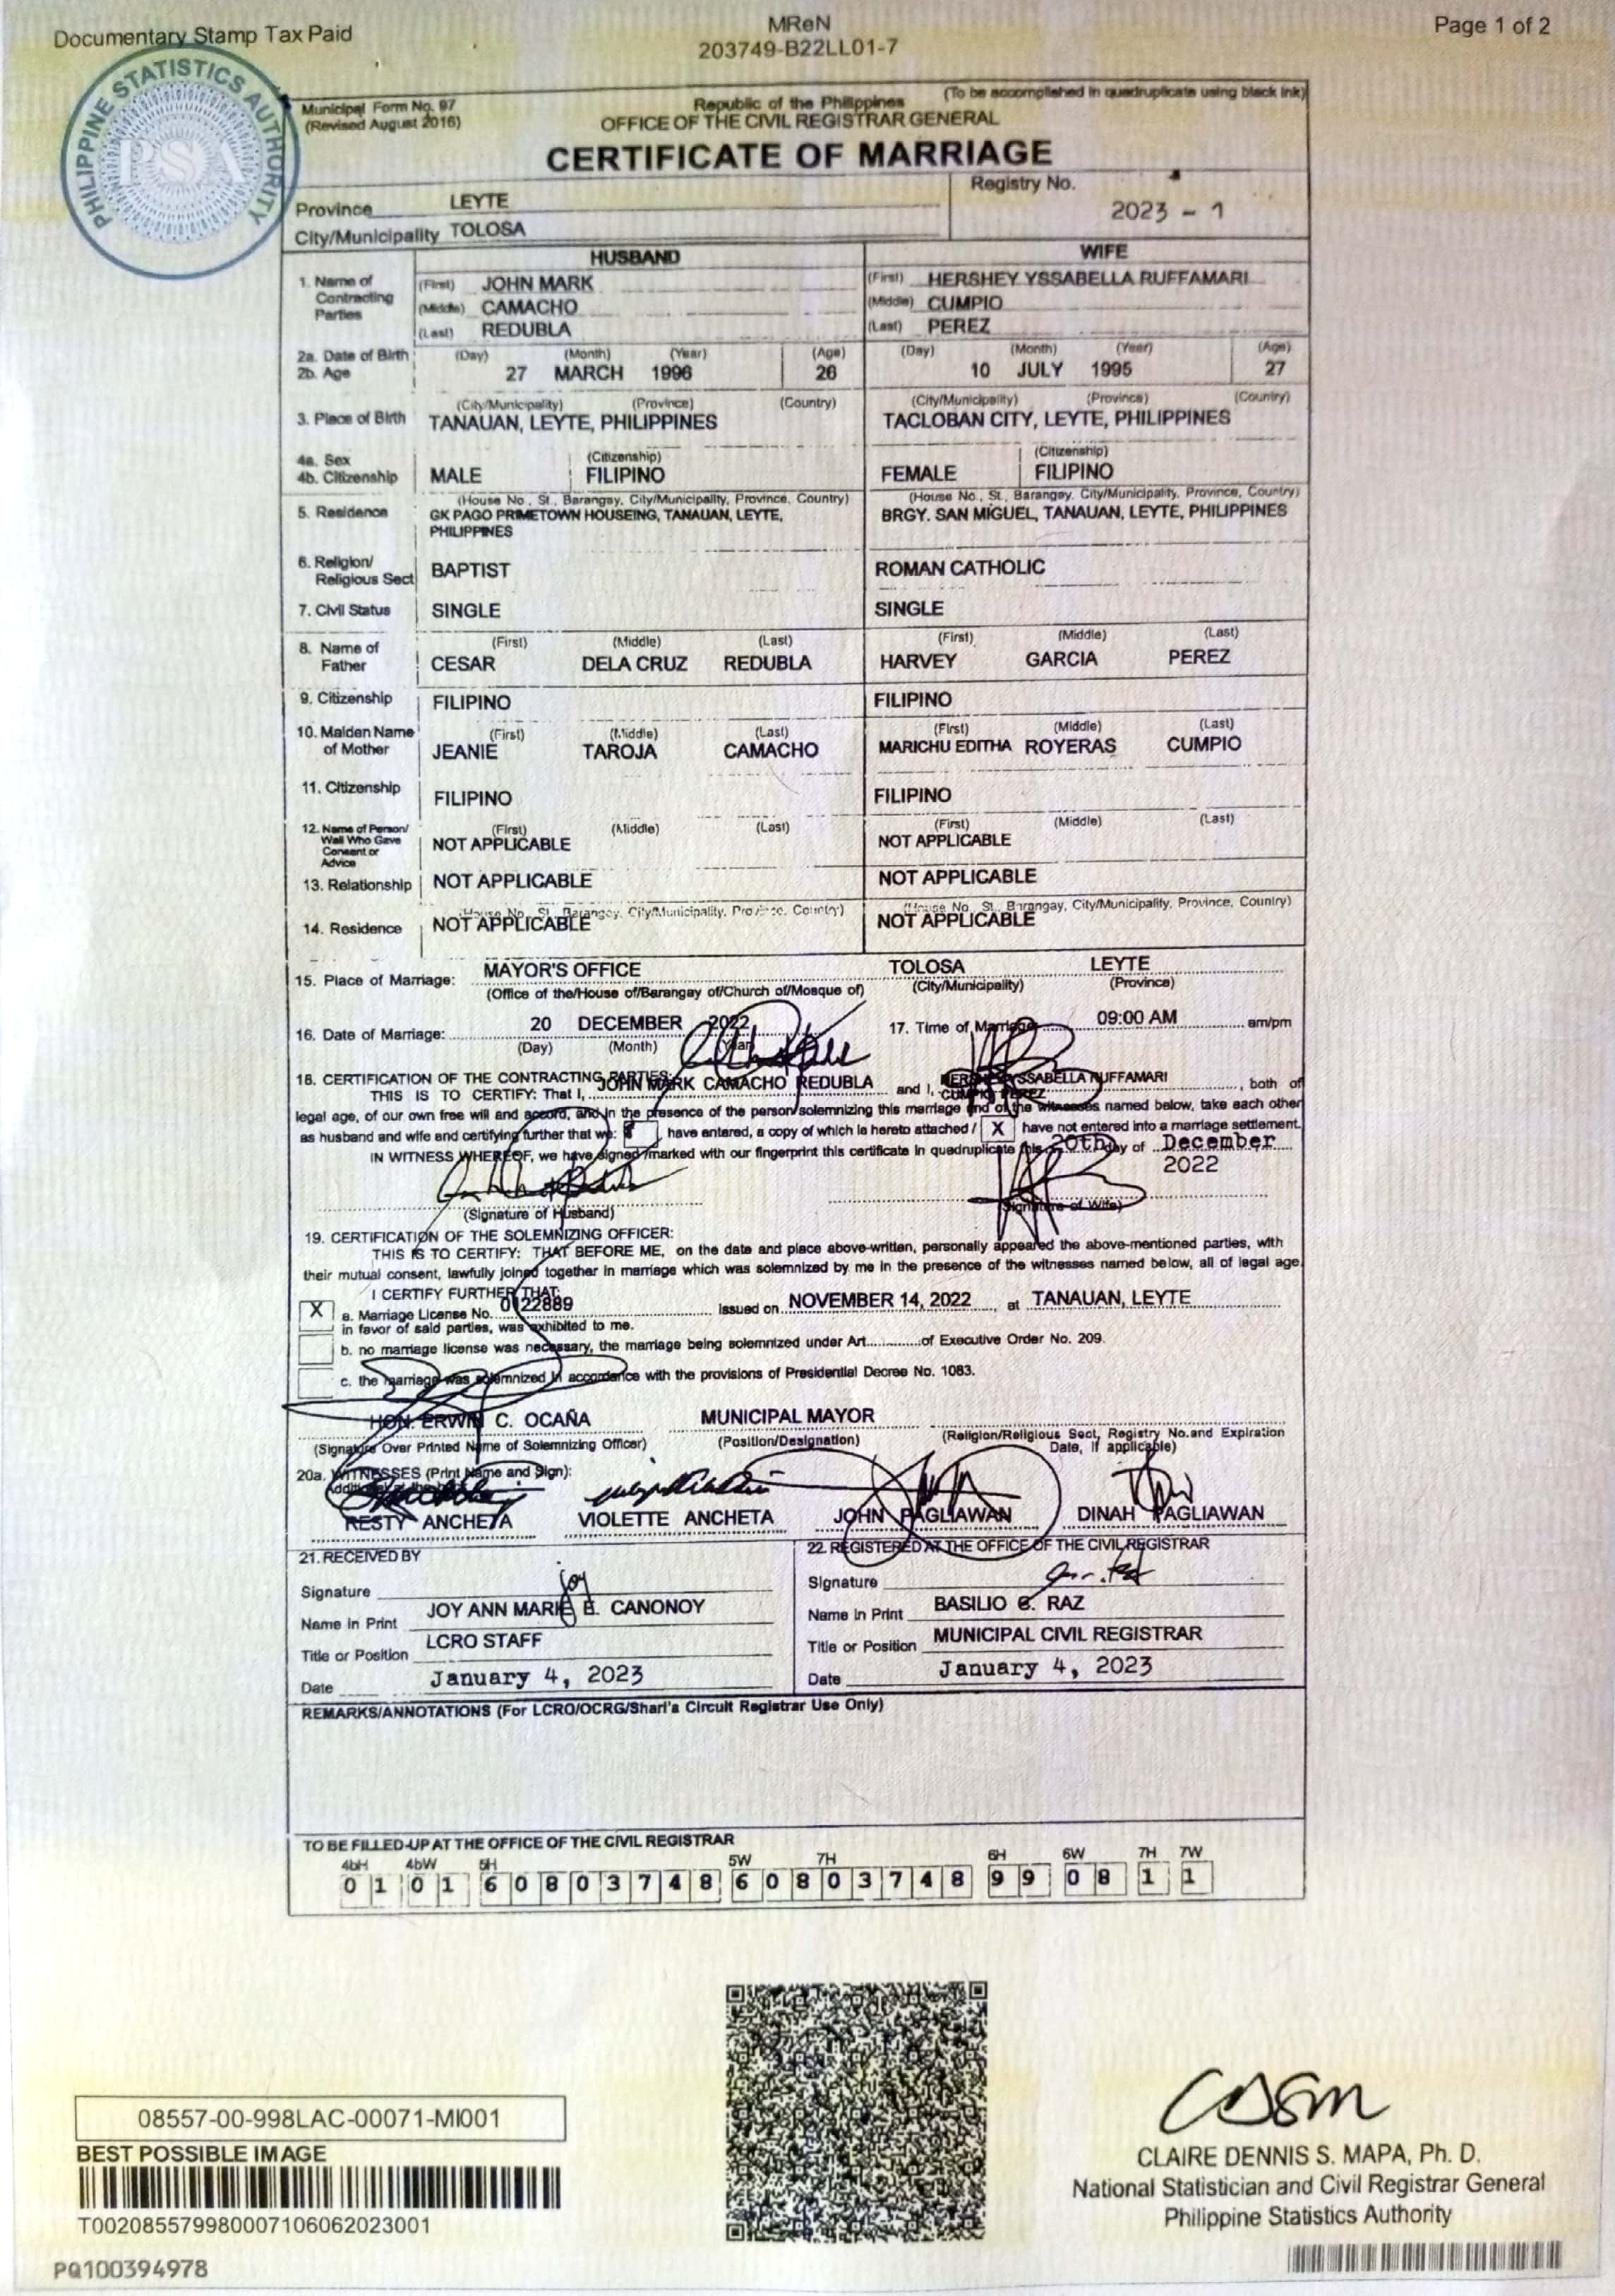 Documentary Stamp Tax Paid
MReN
203749-B22LL01-7
Page 1 of 2
PHILIPPINE STATISTICS AUTHORITY
PSA
Municipal Form No. 97
(Revised August 2016)
Republic of the Philippines
OFFICE OF THE CIVIL REGISTRAR GENERAL
(To be accomplished in quadruplicate using black ink)
CERTIFICATE OF MARRIAGE
Province LEYTE
City/Municipality TOLOSA
Registry No.
2023 - 1
HUSBAND WIFE
1. Name of Contracting Parties
(First) JOHN MARK (First) HERSHEY YSSABELLA RUFFAMARI
(Middle) CAMACHO (Middle) CUMPIO
(Last) REDUBLA (Last) PEREZ
2a. Date of Birth (Day) (Month) (Year) (Age) (Day) (Month) (Year) (Age)
2b. Age 27 MARCH 1996 26 10 JULY 1995 27
(City/Municipality) (Province) (Country) (City/Municipality) (Province) (Country)
3. Place of Birth TANAUAN, LEYTE, PHILIPPINES TACLOBAN CITY, LEYTE, PHILIPPINES
4a. Sex (Citizenship) (Citizenship)
4b. Citizenship MALE FILIPINO FEMALE FILIPINO
(House No., St., Barangay, City/Municipality, Province, Country) (House No., St., Barangay, City/Municipality, Province, Country)
5. Residence GK PAGO PRIMETOWN HOUSEING, TANAUAN, LEYTE, BRGY. SAN MIGUEL, TANAUAN, LEYTE, PHILIPPINES
PHILIPPINES
6. Religion/
Religious Sect BAPTIST ROMAN CATHOLIC
7. Civil Status SINGLE SINGLE
8. Name of Father (First) (Middle) (Last) (First) (Middle) (Last)
CESAR DELA CRUZ REDUBLA HARVEY GARCIA PEREZ
9. Citizenship FILIPINO FILIPINO
10. Maiden Name of Mother (First) (Middle) (Last) (First) (Middle) (Last)
JEANIE TAROJA CAMACHO MARICHU EDITHA ROYERAS CUMPIO
11. Citizenship FILIPINO FILIPINO
12. Name of Person/ Wali Who Gave Consent or Advice (First) (Middle) (Last) (First) (Middle) (Last)
NOT APPLICABLE NOT APPLICABLE
13. Relationship NOT APPLICABLE NOT APPLICABLE
(House No., St., Barangay, City/Municipality, Province, Country) (House No., St., Barangay, City/Municipality, Province, Country)
14. Residence NOT APPLICABLE NOT APPLICABLE
15. Place of Marriage: MAYOR'S OFFICE TOLOSA LEYTE
(Office of the/House of/Barangay of/Church of/Mosque of) (City/Municipality) (Province)
16. Date of Marriage: 20 DECEMBER 2022 17. Time of Marriage 09:00 AM am/pm
(Day) (Month) (Year)
18. CERTIFICATION OF THE CONTRACTING PARTIES:
THIS IS TO CERTIFY: That I, JOHN MARK CAMACHO REDUBLA and I, HERSHEY YSSABELLA RUFFAMARI CUMPIO PEREZ, both of
legal age, of our own free will and accord, and in the presence of the person solemnizing this marriage and of the witnesses named below, take each other
as husband and wife and certifying further that we: have entered, a copy of which is hereto attached / X have not entered into a marriage settlement.
IN WITNESS WHEREOF, we have signed/marked with our fingerprint this certificate in quadruplicate this 20th day of December
2022
(Signature of Husband) (Signature of Wife)
19. CERTIFICATION OF THE SOLEMNIZING OFFICER:
THIS IS TO CERTIFY: THAT BEFORE ME, on the date and place above-written, personally appeared the above-mentioned parties, with
their mutual consent, lawfully joined together in marriage which was solemnized by me in the presence of the witnesses named below, all of legal age.
I CERTIFY FURTHER THAT:
X a. Marriage License No. 0122889 issued on NOVEMBER 14, 2022, at TANAUAN, LEYTE
in favor of said parties, was exhibited to me.
b. no marriage license was necessary, the marriage being solemnized under Art..............of Executive Order No. 209.
c. the marriage was solemnized in accordance with the provisions of Presidential Decree No. 1083.
HON. ERWIN C. OCAÑA MUNICIPAL MAYOR
(Signature Over Printed Name of Solemnizing Officer) (Position/Designation) (Religion/Religious Sect, Registry No.and Expiration
Date, if applicable)
20a. WITNESSES (Print Name and Sign):
RESTY ANCHETA VIOLETTE ANCHETA JOHN PAGLIAWAN DINAH PAGLIAWAN
21. RECEIVED BY 22. REGISTERED AT THE OFFICE OF THE CIVIL REGISTRAR
Signature Signature
Name in Print JOY ANN MARIE E. CANONOY Name in Print BASILIO C. RAZ
Title or Position LCRO STAFF Title or Position MUNICIPAL CIVIL REGISTRAR
Date January 4, 2023 Date January 4, 2023
REMARKS/ANNOTATIONS (For LCRO/OCRG/Shari'a Circuit Registrar Use Only)
TO BE FILLED-UP AT THE OFFICE OF THE CIVIL REGISTRAR
4bH 4bW 5H 5W 7H 6H 6W 7H 7W
0 1 0 1 6 0 8 0 3 7 4 8 6 0 8 0 3 7 4 8 9 9 0 8 1 1
08557-00-998LAC-00071-MI001
BEST POSSIBLE IMAGE
T002085579980007106062023001
PQ100394978
CLAIRE DENNIS S. MAPA, Ph. D.
National Statistician and Civil Registrar General
Philippine Statistics Authority